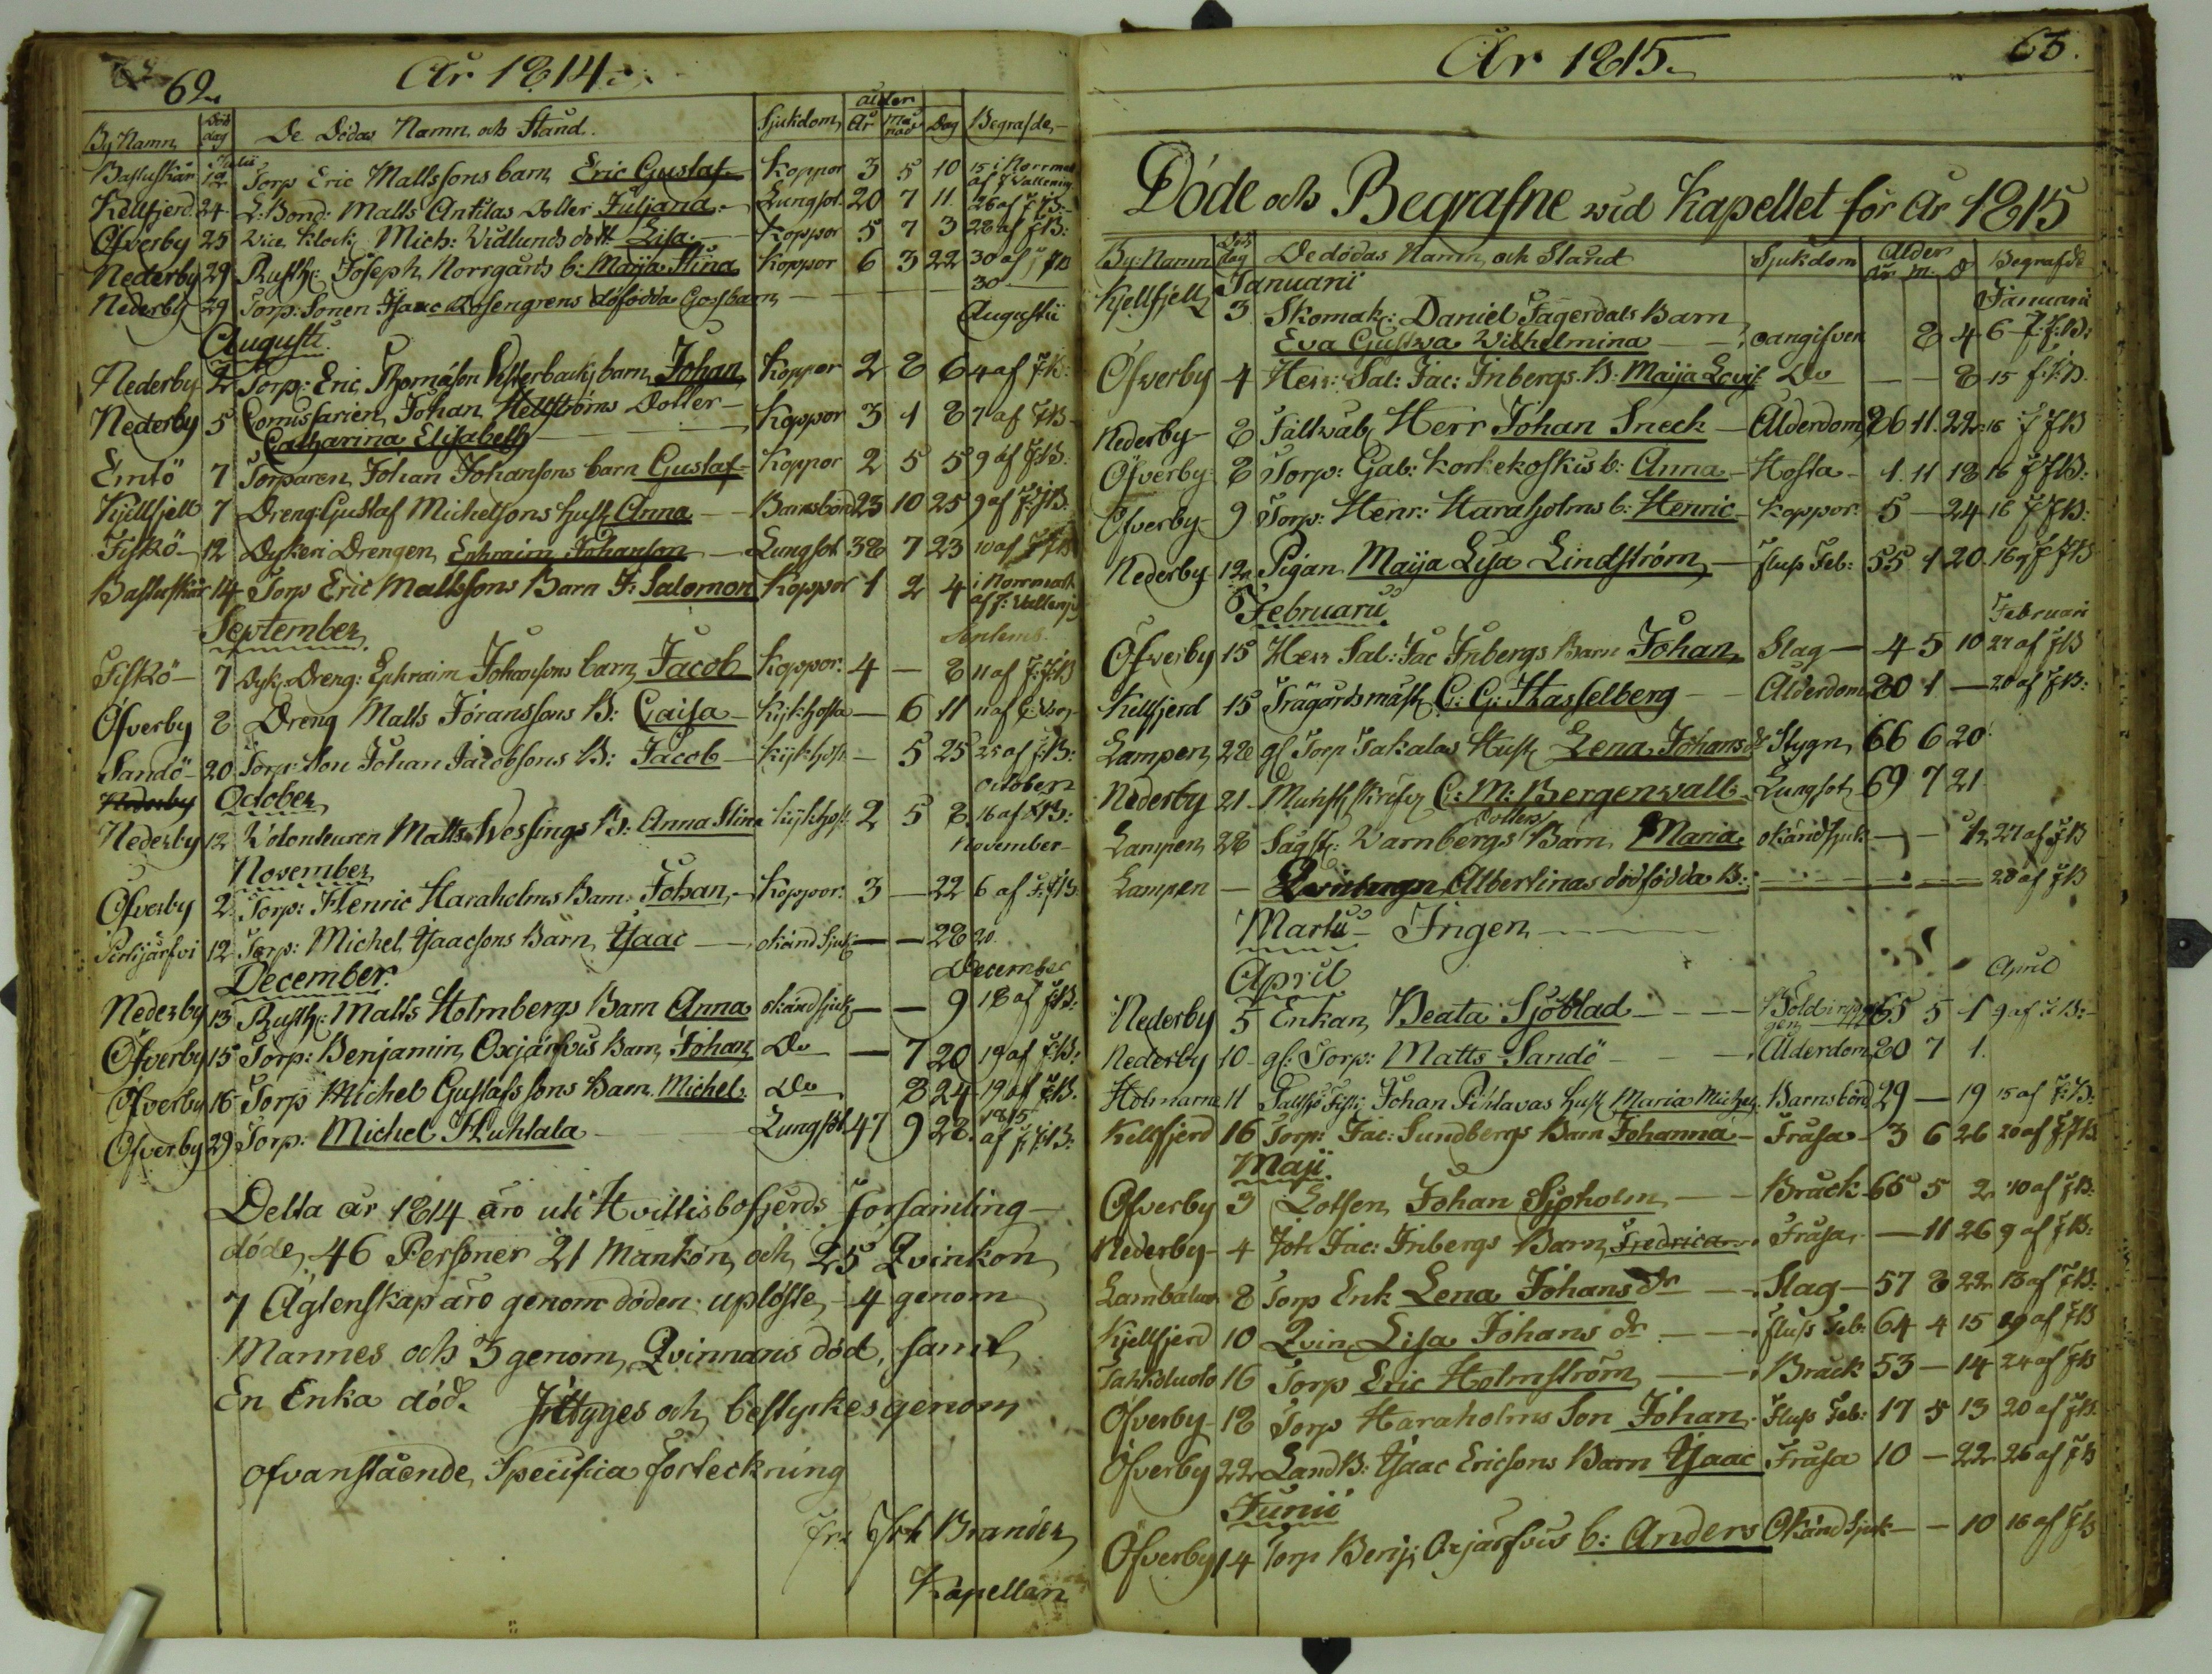 62.
År 1814.
By Namn Död dag De Dödas Namn och Stånd. Sjukdom ålder År Månad Dag Begrafde
Julii
Bastuskär 12 Torp Eric Mattssons barn Eric Gustaf Koppor 3 5 10 15 i Norrmark
af J Wallenius
Kellfjerd 24 L: Bond: Matts Antilas Dotter Juljana Lungsot 20 7 11 26 af J: B:
Öfverby 25 Vice Klock: Mich: Vidlunds dott. Lisa Koppor 5 7 3 28 af J B:
Nederby 29 Rusth: Joseph Norrgårds b: Maija Stina Koppor 6 3 22 30 af J B
Nederby 29 Torp: Sonen Isaac Rosengrens döfödda Gossbarn 30
Augusti Augustii
Nederby 2 Torp: Eric Thomason Vesterbacks barn Johan Koppor 2 8 6 4 af J B:
Nederby 5 Comissarien Johan Hellströms Dotter
Catharina Elisabeth Koppor 3 1 8 7 af J B
Emtö 7 Torparen Johan Johansons barn Gustaf Koppor 2 5 5 9 af J B:
Kjellfjell 7 Dreng: Gustaf Michelsons hust Anna Barnsbörd 23 10 25 9 af J: B:
Fiskö 12 Dykeri Drengen Ephraim Johanson Lungsot 38 7 23 10 af J B
Bastuskär 14 Torp Eric Mattssons Barn F: Salomon Koppor 1 2 4 i Norrmark
af J: Walleni
September Septemb.
Fiskö 7 Dyk: Dreng: Ephraim Johansons barn Jacob Koppor: 4 — 8 11 af J: B
Öfverby 8 Dreng Matts Göranssons B: Caisa Kikhosta — 6 11 11 af
Sandö 20 Torp: Son Johan Jacobsons B: Jacob Kikhost — 5 25 25 af J: B:
Nederby October October
Nederby 12 Volonteuren Matts Wessings B: Anna Stina Kikhost 2 5 8 16 af J B:
November November
Öfverby 2 Torp: Henric Haraholms Barn: Johan Koppor: 3 — 22 6 af J: B
12 Torp: Michel Isaacsons Barn Isaac okänd Sjuk — — 28 20
December December
Nederby 13 Rusth: Matts Holmbergs Barn Anna okänd sjuk — — 9 18 af J: B:
Öfverby 15 Torp: Benjamin Oxjärfvis Barn Johan Do — 7 20 19 af J: B:
Öfverby 16 Torp Michel Gustafssons Barn Michel Do 8 24 19 af J B.
1815
Öfverby 29 Torp: Michel Huhtala Lungsot 47 9 28 af J: B:
Detta år 1814 äro uti Hvittisbofjerds Församling
döde 46 Personer 21 Mankön och 25 Qvinkön
7 Ägtenskap äro genom döden uplöste, 4 genom
Mannes och 3 genom Qvinnans död, samt
En Enka död. Intygges och bestyrkes genom
ofvanstående Specifica förteckning
Joh Brander
Kapellan
63.
År 1815
Döde och Begrafne wid Kapellet för år 1815
By: Namn Död dag De dödas Namn och Stånd Sjukdom Ålder år m. D Begrafde
Januarii Januarii
Kjellfjell 3 Skomak: Daniel Fagerdals Barn
Eva Gustava Wilhelmina oangifven 8 4 6 J: B:
Öfwerby 4 Herr: Sal: Jac: Inbergs B: Maija Lovis: Do — — 8 15 J: B.
Nederby 8 Fältwäb: Herr Johan Sneck Ålderdom 86 11 22 16 J B
Öfverby 8 Torp: Gab: Korkekoskis b: Anna Hosta 1 11 18 16 J B:
Öfverby 9 Torp: Henr: Haraholms b: Henric Koppor: 5 — 24 16 J B:
Nederby 12 Pigan Maija Lisa Lindström Fluss Feb: 55 1 20 16 J B
Februarii Februari
Öfwerby 15 Herr Sal: Jac Inbergs Barn Johan Slag 4 5 10 27 af J B
Kellfjerd 15 Trägårdsmäst: C: G: Hasselberg Ålderdom 80 1 — 20 af J B:
Lampen 22 gl Torp Takalas Hust Lena Johans dr Stygn 66 6 20
Nederby 21 C: M: Bergenwall Lungsot 69 7 21
Lampen 28 Sågst: Warnbergs Dotters Barn Maria okänd sjuk — — ½ 27 af J B
Lampen — Qvinhugn Albertinas dödfödda B: 28 af J B
Martii — Ingen
April April
Nederby 5 Enkan Beata Sjöblad 65 5 1 9 af J B:
Nederby 10 gl: Torp: Matts Sandö Ålderdom 80 7 1
Holmarna 11 Johan Pihlavas hust Maria Michels Barnsbörd 29 — 19 15 af J: B:
Kellfjerd 16 Torp: Jac: Sundbergs Barn Johanna Fråsa 3 6 26 20 af J B
Maji
Öfverby 3 Lotsen Johan Sjöholm Bråck 65 5 2 10 af J B:
Nederby 4 Joh Jac: Inbergs Barn Fredrica Fråsa — 11 26 9 af J B:
8 Torp Enk Lena Johans dr Slag 57 8 22 13 af J B:
Kjellfjerd 10 Qvin Lisa Johans dr Fluss Feb: 64 4 15 19 af J B
Tahkoluoto 16 Torp Eric Holmström Bråck 53 — 14 24 af J B
Öfverby 18 Torp Haraholms Son Johan Fluss Feb: 17 5 13 20 af J B:
Öfverby 22 LandB: Isaac Ericsons Barn Isaac Fråsa 10 — 22 26 af J B
Junii
Öfverby 14 Torp Benj: Oxjärfvis b: Anders Okänd sjuk — — 10 16 af J B